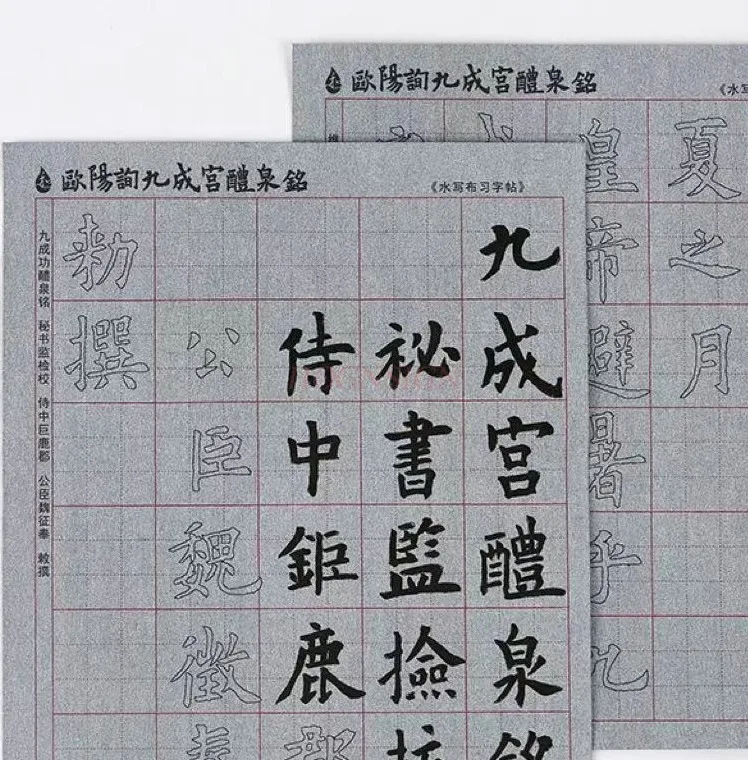 歐陽詢九成宮醴泉銘
《水写
夏之月
皇帝避暑乎九
歐陽詢九成宮醴泉銘
《水写布习字帖》
九成宮醴泉銘
祕書監撿挍
侍中鉅鹿郡
公臣魏徵奉
勑撰
九成功醴泉铭 秘书监检校 侍中巨鹿郡 公臣魏征奉 敕撰